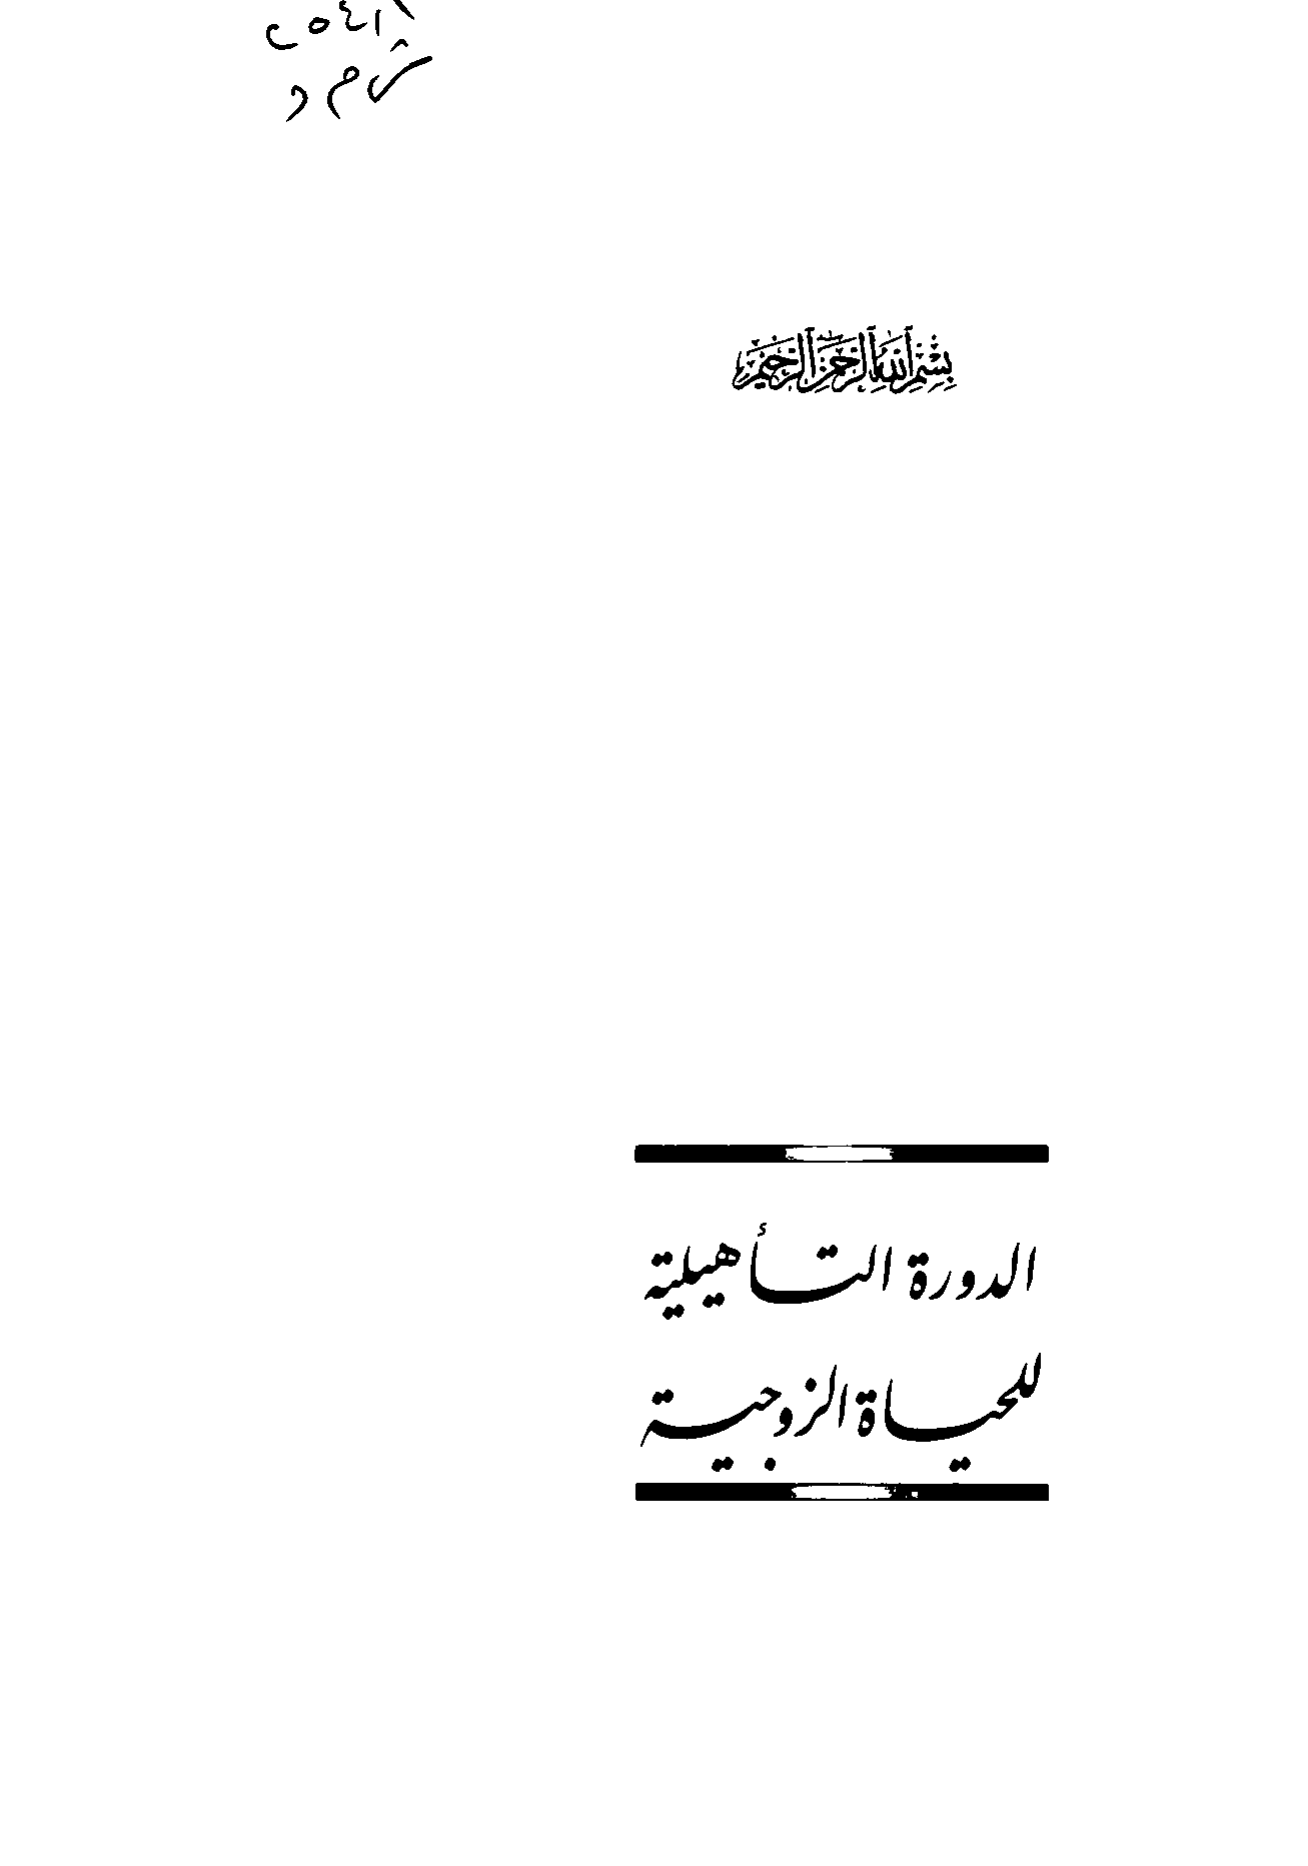 بسم الله الرحمن الرحيم
الدورة التأهيلية
للحياة الزوجية